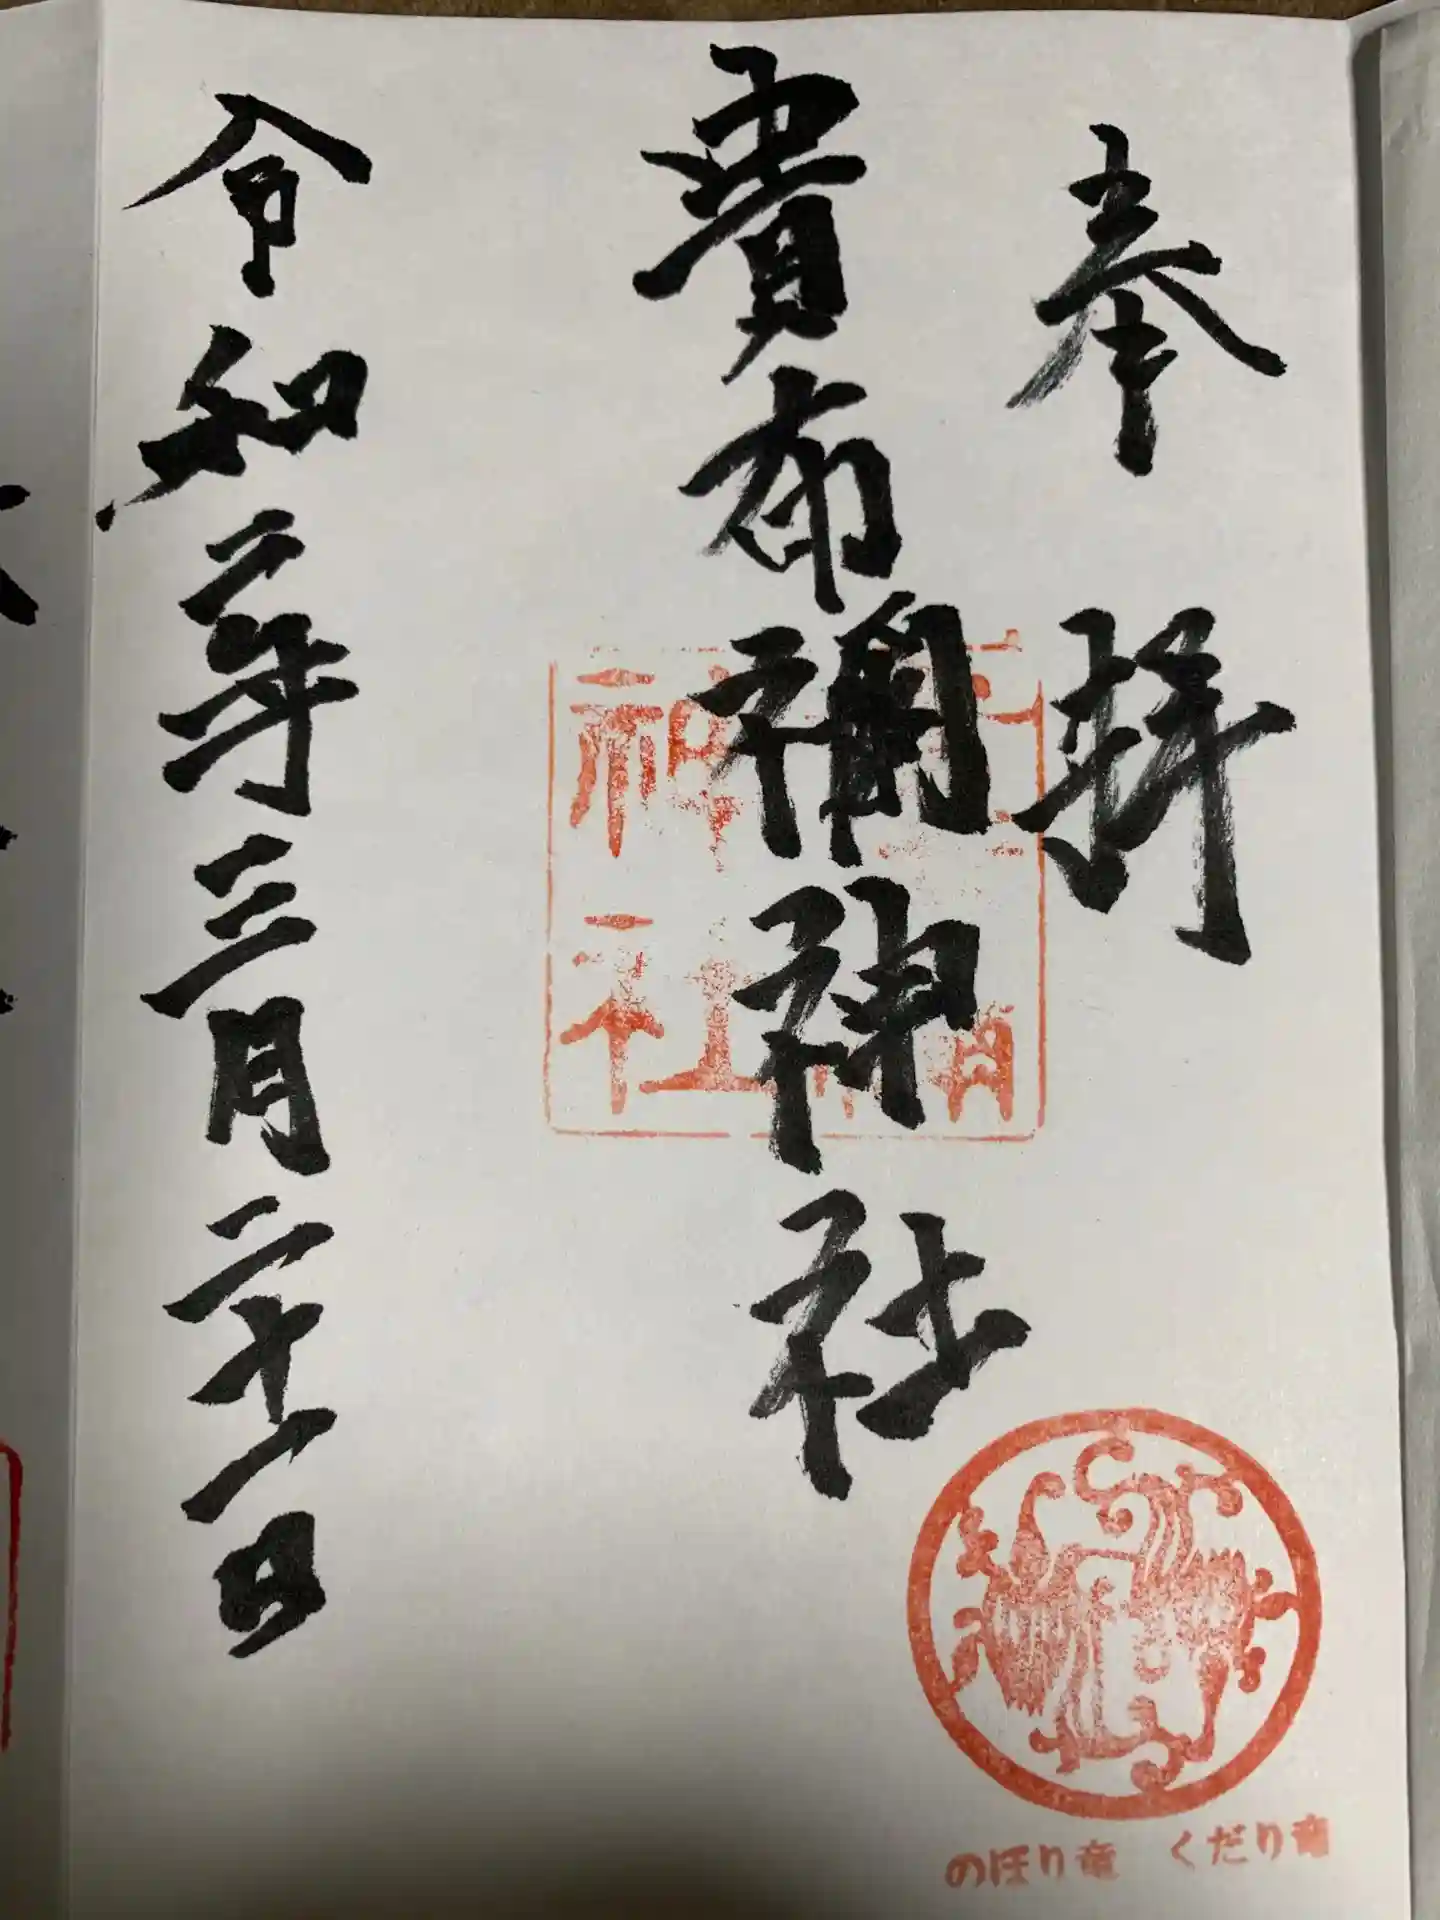 奉拝
貴布禰神社
神社
令和二年三月二十一日
のぼり竜 くだり竜